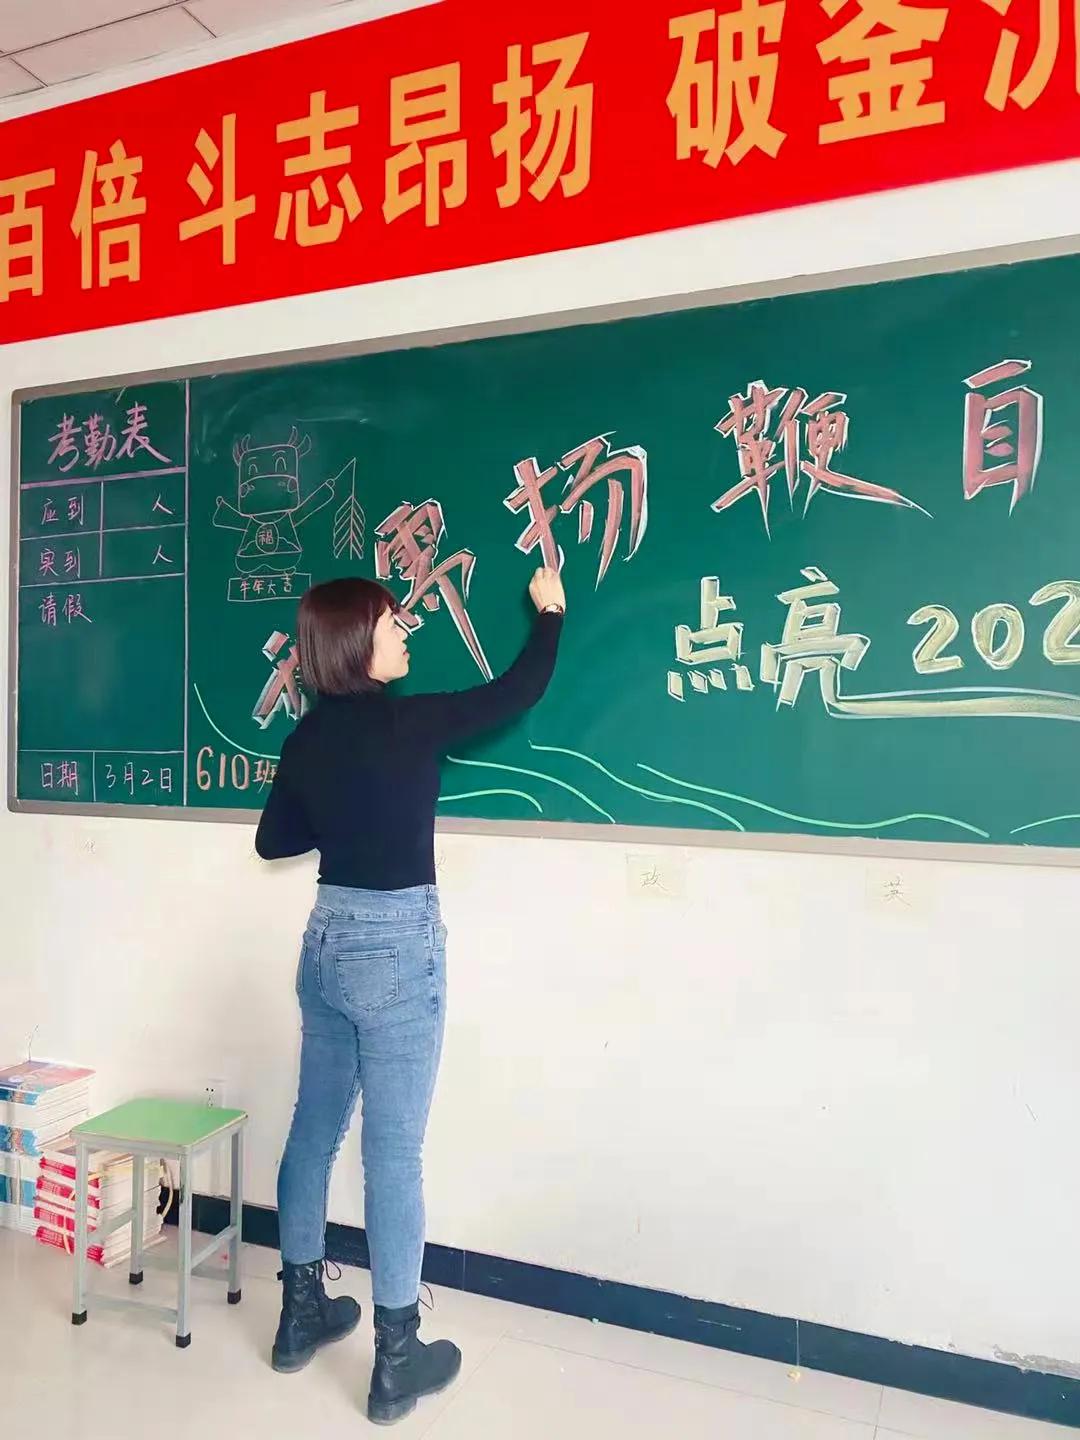 百倍 斗志昂扬 破釜沉
考勤表
应到 人
实到 人
请假
日期 3月2日
福
牛年大吉
霁扬鞭自
点亮 202
610班
化
政
英